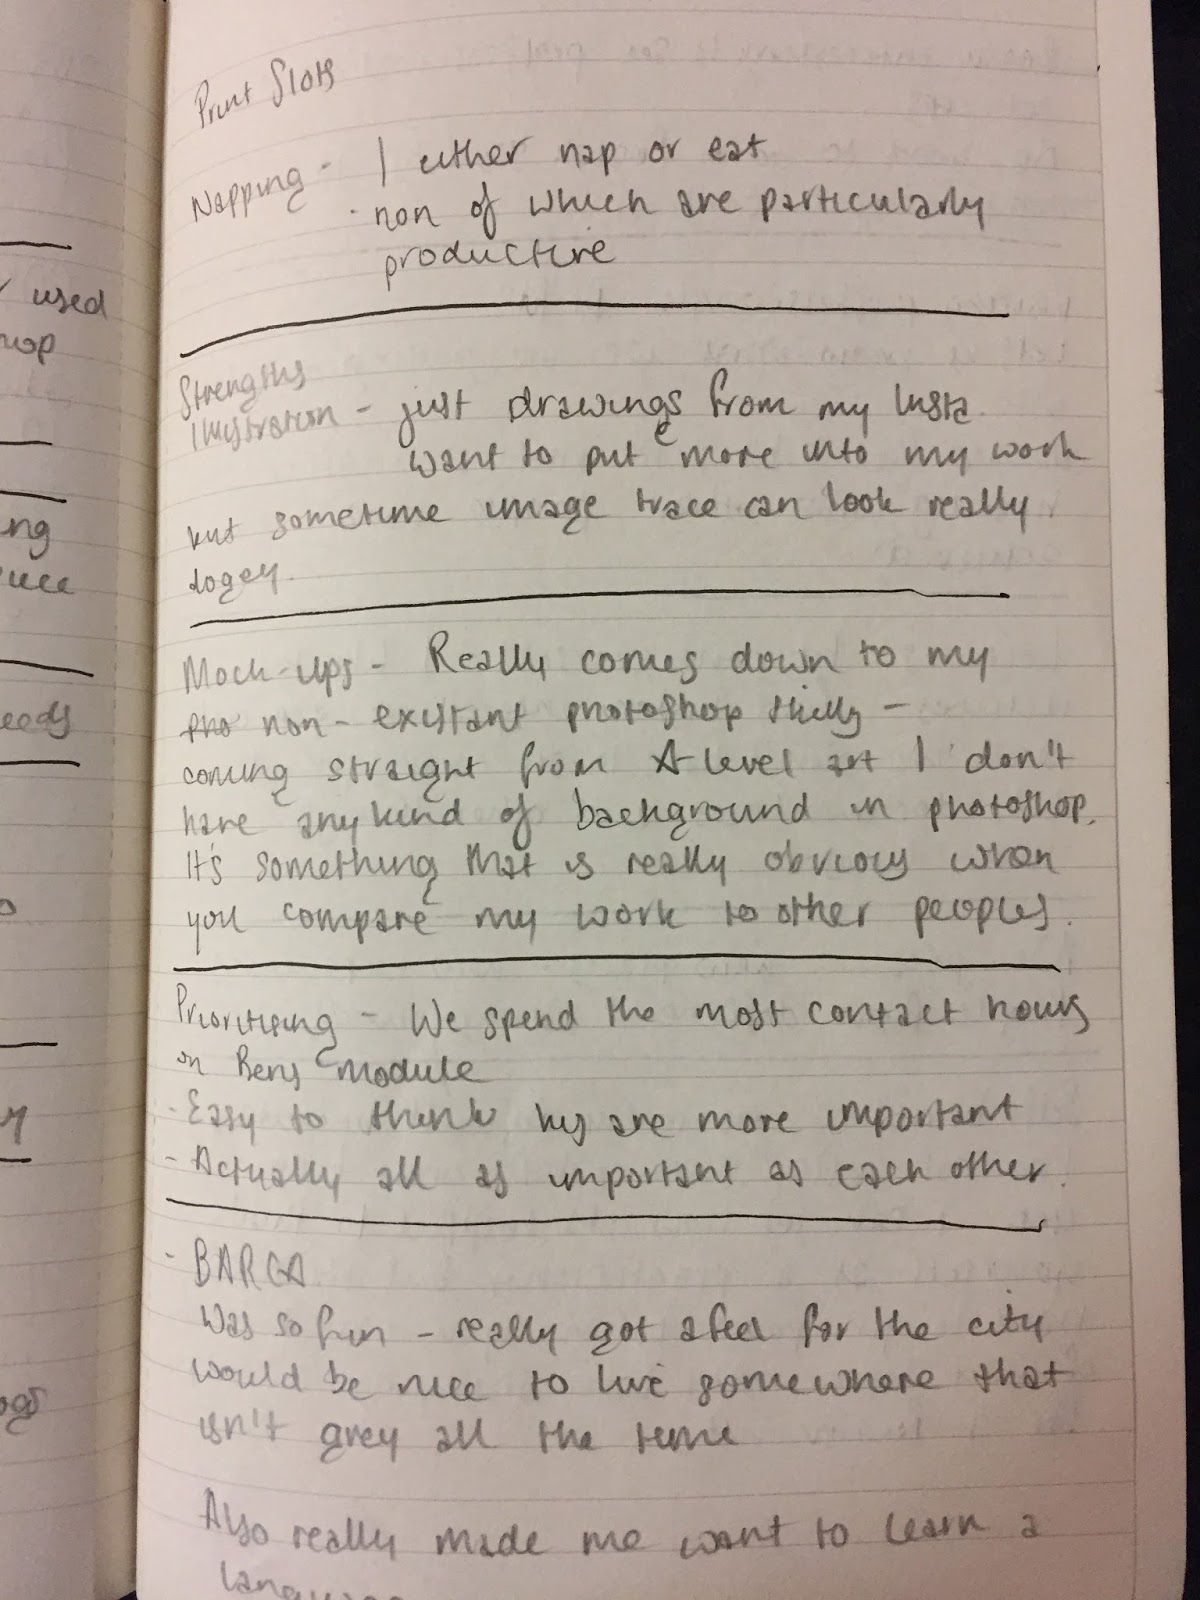 used
Print Slots
Napping - I either nap or eat
- non of which are particularly
productive
Strengths
Illustration - just drawings from my Insta.
want to put more into my work
but sometime image trace can look really
dogey.
Mock-ups - Really comes down to my
pho non-existant photoshop skills -
coming straight from A level art I don't
have any kind of background in photoshop.
It's something that is really obvious when
you compare my work to other peoples.
Prioritising - We spend the most contact hours
in Bens module
- Easy to think his are more important
- Actually all as important as each other.
- BARCA
Was so fun - really got a feel for the city
would be nice to live somewhere that
isn't grey all the time
Also really made me want to learn a
language